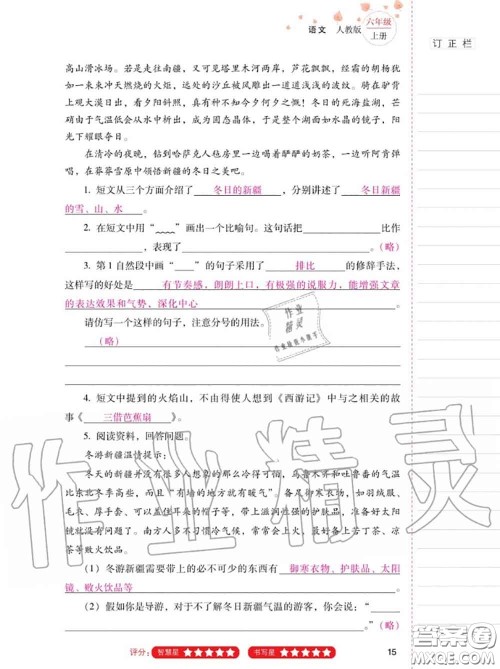 语文 人教版 六年级上册
订正栏
高山滑冰场。若是走往南疆，塔里木河两岸，芦花飘飘，经霜的胡杨犹
如一束束冲天燃烧的火炬，远处的沙丘被风雕出一道道浅浅的波纹。骑在驼背
上观大漠日出，看夕阳斜照，真有种不知今夕何夕之慨！冬日的死海盐湖，芒
硝由于气温低会从水中析出，成为固体，整个大湖面如水晶的镜子，阳
光下耀眼夺目。
在清冷的夜晚，钻到哈萨克人毡房里一边喝着驴驴的奶茶，一边听阿肯弹
唱，在莽莽雪原中领悟新疆的冬日之美吧。
1. 短文从三个方面介绍了 冬日的新疆 ，分别讲述了 冬日新疆
的雪、山、水 。
2. 在短文中用“﹏﹏”画出一个比喻句。这句话把 比作
，表现了 。（略）
3. 第1自然段中画“——”的句子采用了 排比 的修辞手法，
这样写的好处是 有节奏感，朗朗上口，有极强的说服力，能增强文章
的表达效果和气势，深化中心
请仿写一个这样的句子，注意分号的用法。
（略）
4. 短文中提到的火焰山，不由得使人想到《西游记》中与之相关的故
事《 三借芭蕉扇 》。
5. 阅读资料，回答问题。
冬游新疆温情提示：
冬天的新疆并没有很多人想象的那么冷得可怕，乌鲁木齐和吐鲁番的气温
比东北冬季高些，而且“有墙的地方就有暖气”。备足御寒衣物，如羽绒服、
毛衣、厚手套、可以盖住耳朵的帽子等，带上滋润性强的护肤品，准备就绪就
没有问题了。南方人多不习惯冬天烤暖气，常常会上火，最好备上苦丁茶、凉
茶等败火饮品。
（1）冬游新疆需要带上的必不可少的东西有 御寒衣物、护肤品、太阳
镜、败火饮品等 。
（2）假如你是导游，对于不了解冬日新疆气温的游客，你会说：“
”（略）
评分： 智慧星 ★★★★★ 书写星 ★★★★★
15
作业精灵
作业精灵
答案圈
MXQE.COM